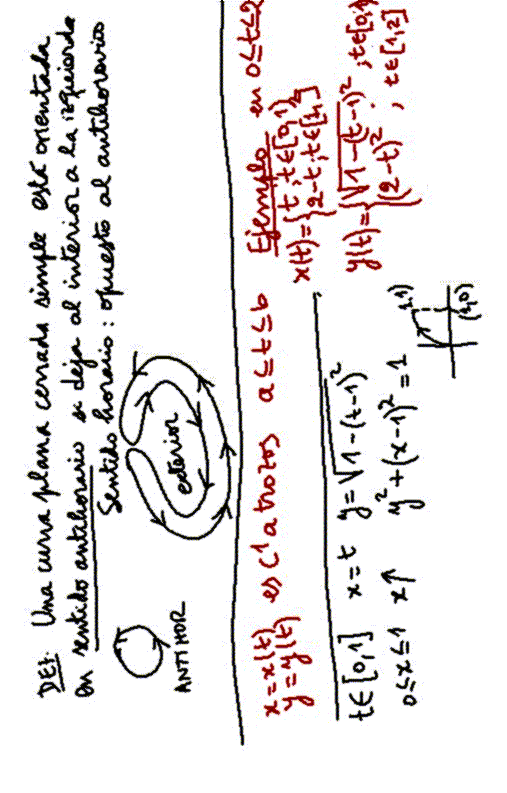 DEF. Una curva plana cerrada simple está orientada
en sentido antihorario si deja al interior a la izquierda
Sentido horario: opuesto al antihorario
ANTIHOR
exterior
x=x(t)
y=y(t) es C¹ a trozos a≤t≤b Ejemplo en 0≤t≤2
x(t)={t ; t∈[0,1)
2-t ; t∈[1,2]
y(t)={√1-(t-1)² ; t∈[0,1)
(2-t)² ; t∈[1,2]
t∈[0,1] x=t y=√1-(t-1)²
0≤x≤1 x↑ y²+(x-1)²=1
(1,1)
(1,0)